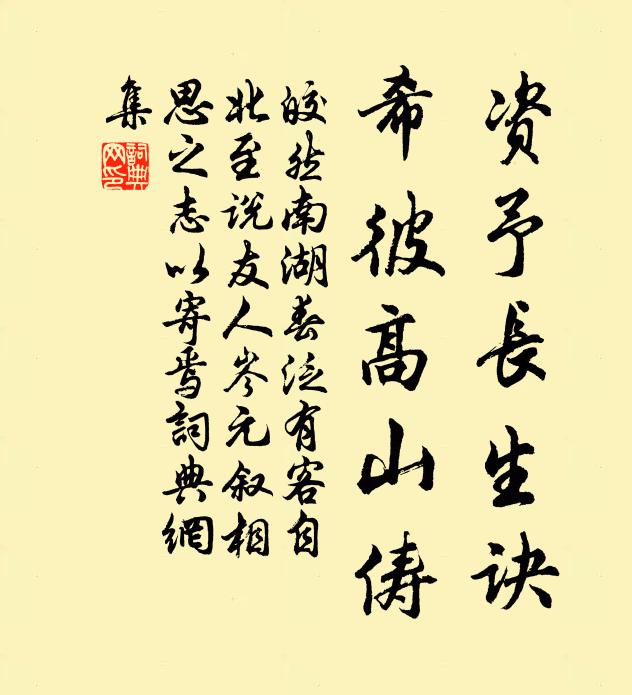 资予長生诀
希彼高山俦
皎然南湖春泛有客自
北至说友人岑元叙相
思之志以寄焉詞典網
集
詞典
网印